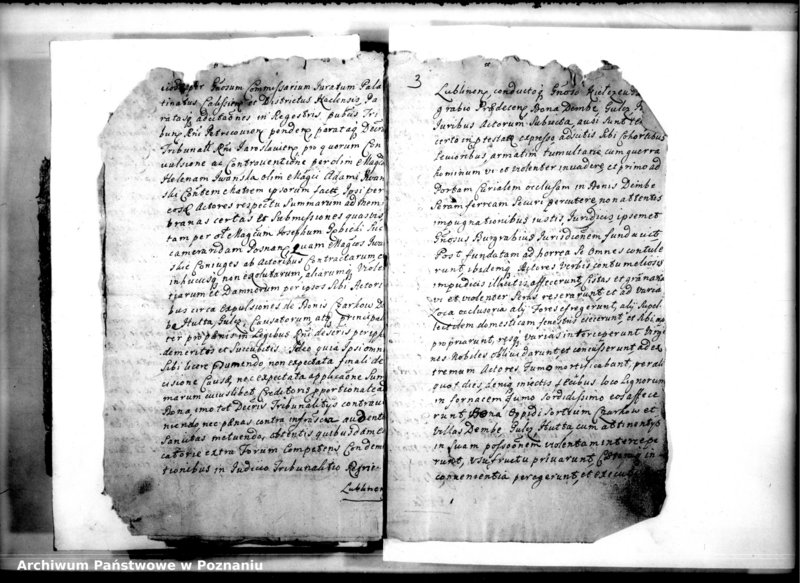 per Gnosum Commissarium Juratum Pala
tinatus Calissien et Districtus Naclensis, Pa
ratasq adcitaones in Regestris pubus Tri
buns Rni Petricovien penden, parataq Decreta
Tribunalt Rni Jaroslavien pro quorum Con
vulsione ac Controventione per olim Magcam
Helenam Iwanska olim Magci Adami Iwan
ski Contemthatem ipsorum Ipsi per
eosq Actores respectu Summarum ad Mem
branas certas et Submissiones quasvis
tam per ol Magcum Josephum Sobicki Suc
camerandam Posnan, quam Magcos Iwan
skie Coniuges ab Actoribus Contractarum et
inhucusq non exolutarum, aliarumq Violen
tiarum et Damnorum per ipsos Sibi Actori
bus circa expulsiones de Bonis Czarkow Dem
be Hutta Guly, Causatorum atq principali
ter pro pænis in Legibus Rni descris per ipsos
demeritis et Succubitis. Ideo quia Ipsi omnia
Sibi licere præsumendo non expectata finali de
cisione Causæ, nec expectata applicaone Sum
marum cuiuslibet Creditoris pportionale ad
Bona, imo tot Decris Tribunalitiis contrave
niendo nec pænas contra infra audentes
Sancitas metuendo, obtentis quibusdam
catorie extra Forum Competens Condemna
tionibus in Judicio Tribunalitio Regni
Lublinen
3
Lublinen, conducto
grabio Bona Dembe Guly
Juribus Actorum Subiecta, ausi sunt
certo in ptestate expresso adscitis Sibi Cohortibus
Levioribus, armatim tumultarie cum guerra
hominum vi et violenter invadere et primo ad
Portam Curialem occlusam in Bonis Dembe
Seram ferream Securi percutere non attentis
impugnationibus iustis Juridicis ipsemet
Gnosus Burgrabius Jurisdictionem fundavit
Post fundatam ad horrea Se Omnes contule
runt, ibidemq Actores verbis contumeliosis
impudicis illicitis affecerunt, Cistas et granaria
vi et violenter Seras reserarunt, et ad varia
Loca exclusoria alq Fores efregerunt, alq Supel
lectilem domesticam fenestris eiecerunt, et Sibi ap
propriarunt, resq varias interceperunt Virgi
nes Nobiles obviudarunt, et concusserunt ad ex
tremum Actores fumo mortificabant, per ali
quot dies, deniq iniectis fecibus loco lignorum
in fornacem fumo Sordidissimo eos affece
runt, Bona Oppidi Sortium Czarkow et
Villas Dembe Guly Hutta cum attinentiis
in Suam possessionem violentam interce pe
runt, usufructu privarunt, in
convenientia peregerunt, et
Archiwum Państwowe w Poznaniu